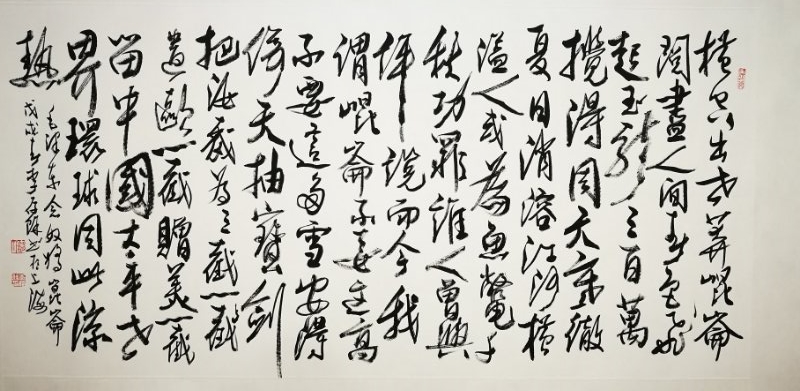 橫空出世莽崐崙
閱盡人間春色飛
起玉龍三百萬
攪得周天寒徹
夏日消溶江河橫
溢人或為魚鱉千
秋功罪誰人曾與
評說而今我
謂崐崙不要這高
不要這多雪安得
倚天抽寶劍
把汝裁為三截一截
遺歐一截贈美一截
留中國太平世
界環球同此涼
熱
毛澤東念奴嬌崑崙
戊戌春李書於上海